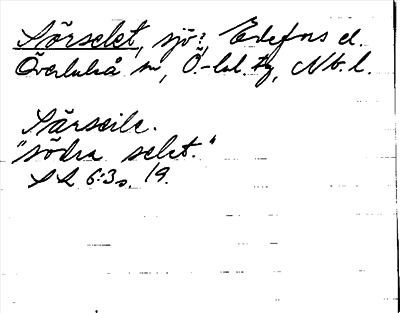 Sörselet, sjö?, Edefors el.
Överluleå sn, Ö.-lul. tg, Nb. l.
Särseile.
"södra selet."
SL 6:3s. 19.